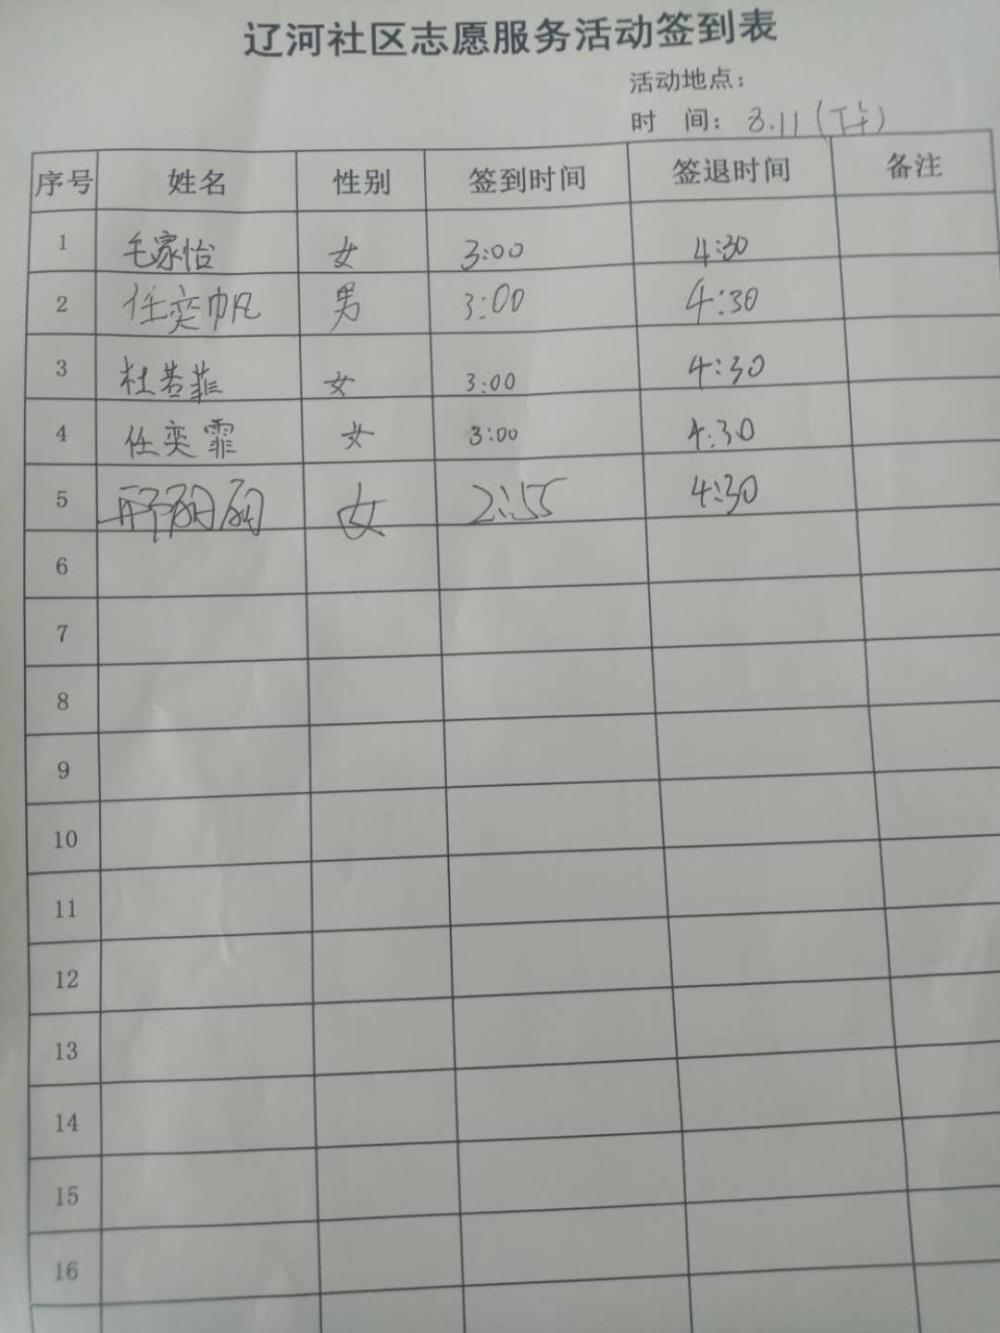 辽河社区志愿服务活动签到表
活动地点：
时 间：8.11（下午）
序号 姓名 性别 签到时间 签退时间 备注
1 毛家怡 女 3:00 4:30
2 任奕帆 男 3:00 4:30
3 杜若菲 女 3:00 4:30
4 任奕霏 女 3:00 4:30
5 女 2:55 4:30
6
7
8
9
10
11
12
13
14
15
16